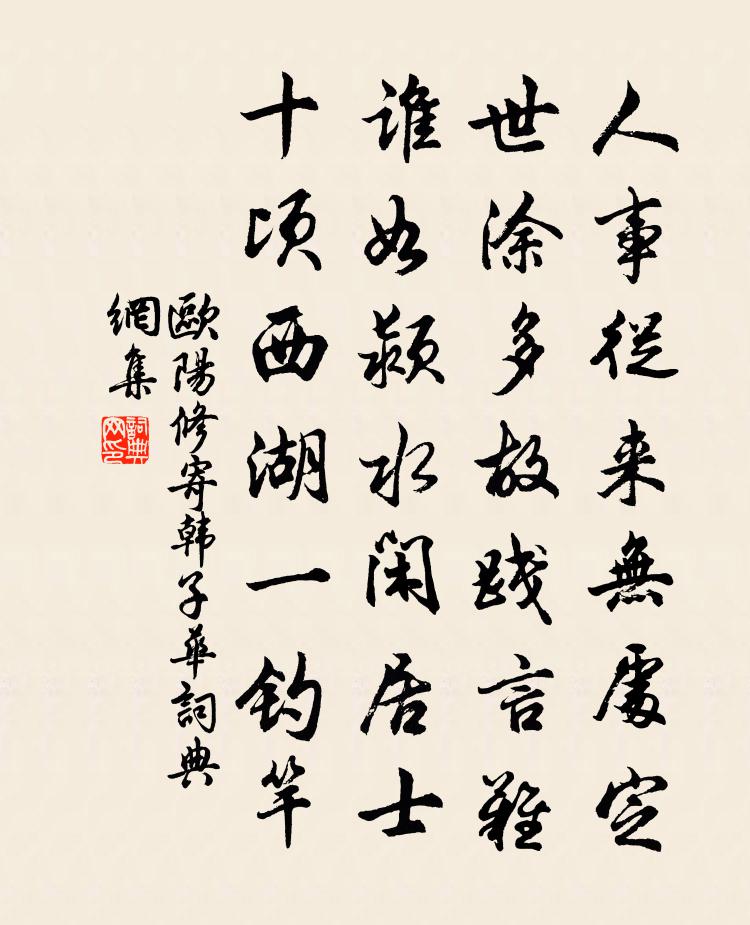 人事從来無處定
世涂多故踐言難
誰如潁水閑居士
十頃西湖一釣竿
歐陽修寄韓子華詞典
網集
詞典
网印